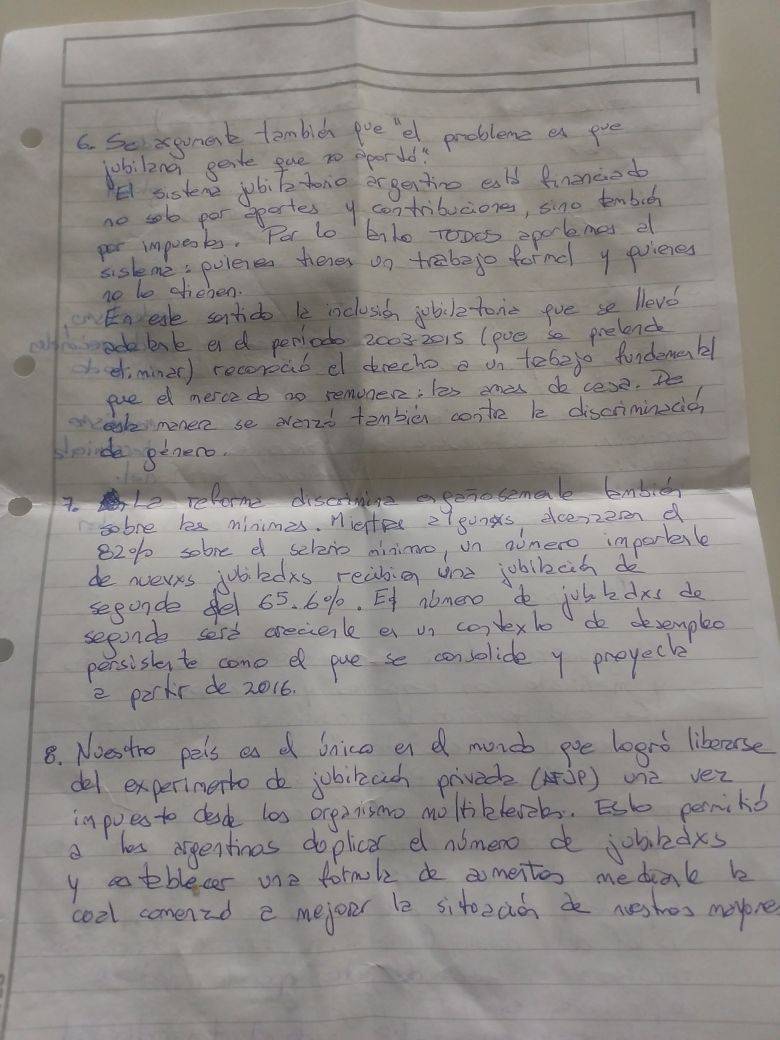 6. Se argumenta también que "el problema es que
jubilaron gente que no aportó".
El sistema jubilatorio argentino está financiado
no solo por aportes y contribuciones, sino también
por impuestos. Por lo tanto TODOS aportamos al
sistema: quienes tienen un trabajo formal y quienes
no lo tienen.
En este sentido la inclusión jubilatoria que se llevó
adelante en el período 2003-2015 (que se pretende
eliminar) reconoció el derecho a un trabajo fundamental
que el mercado no remunera: las amas de casa. De
esta manera se avanzó también contra la discriminación
de género.
7. La reforma discrimina engañosamente también
sobre las mínimas. Mientras algunxs alcanzaran el
82% sobre el salario mínimo, un número importante
de nuevxs jubiladxs reciben una jubilación de
segunda del 65.6%. El número de jubiladxs de
segunda será creciente en un contexto de desempleo
persistente como el que se consolida y proyecta
a partir de 2016.
8. Nuestro país es el único en el mundo que logró liberarse
del experimento de jubilación privada (AFJP) una vez
impuesto desde los organismo multilaterales. Esto permitió
a los argentinos duplicar el número de jubiladxs
y establecer una formula de aumentos mediante la
cual comenzó a mejorar la situación de nuestros mayores